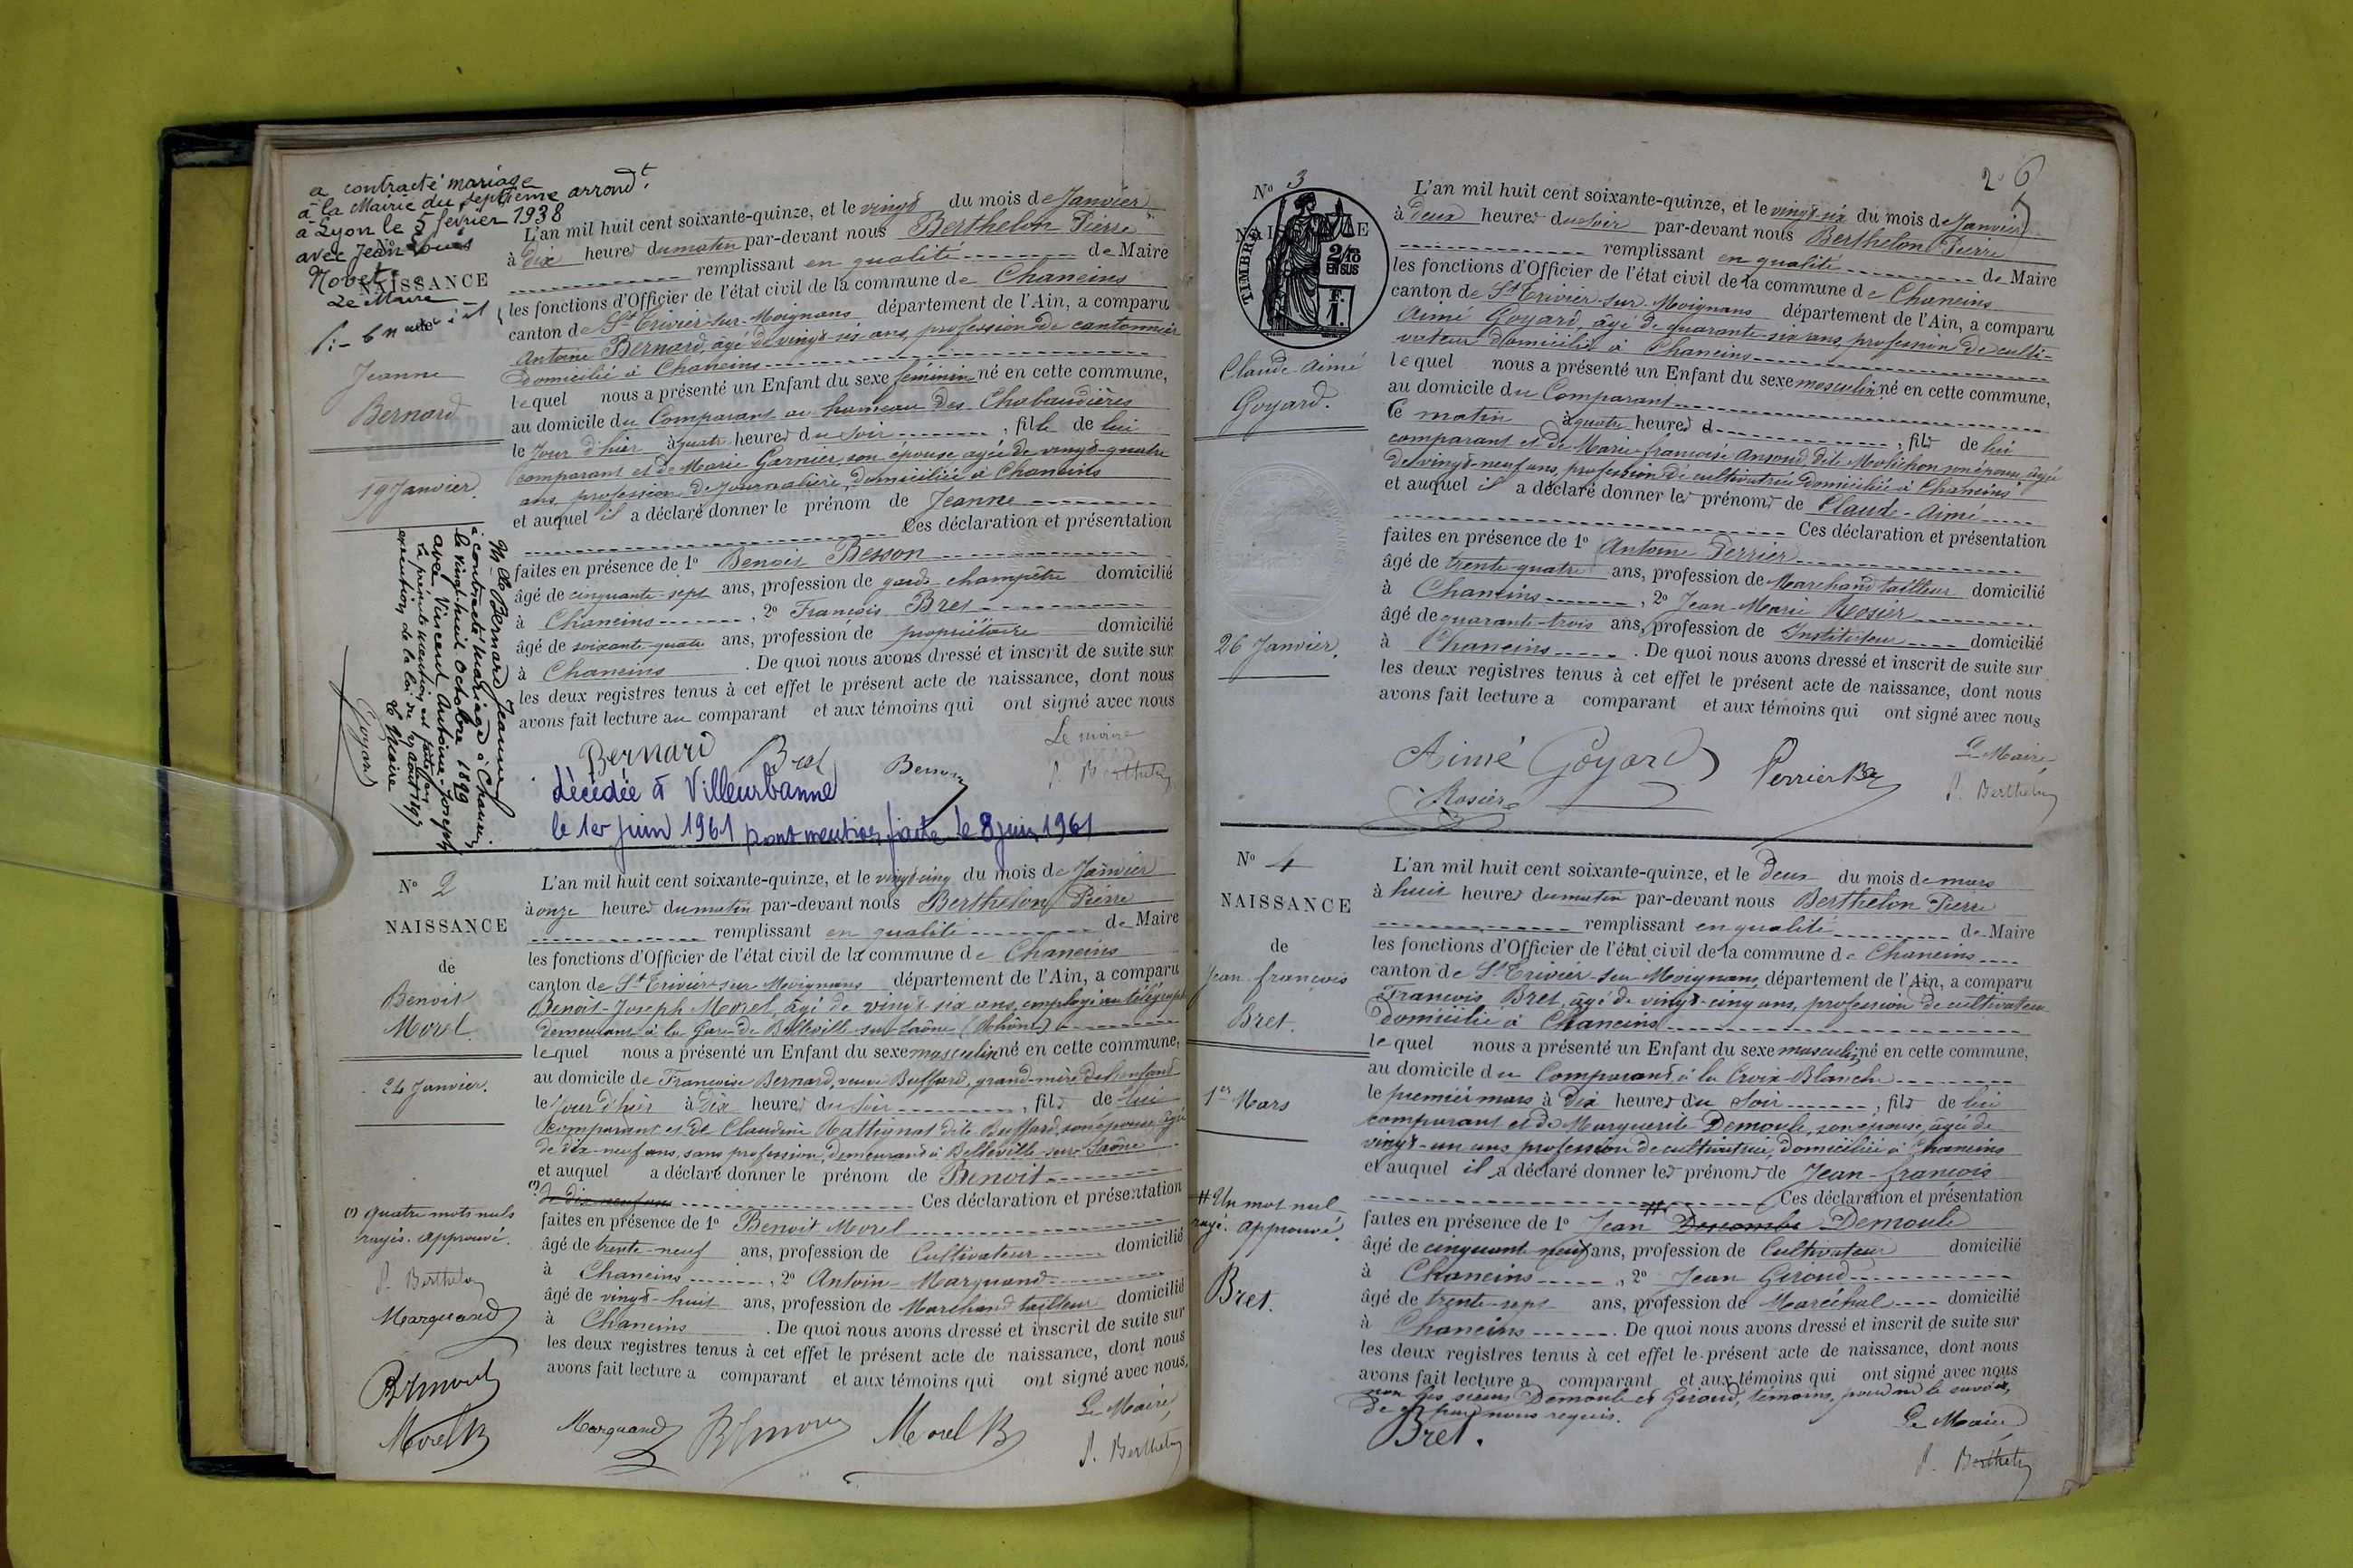 a contracté mariage
à la Mairie du septième arrondt.
à Lyon le 5 février 1938
avec Jean Louis
Nobet
Le Maire
NAISSANCE
de
Jeanne
Bernard
19 Janvier.
L'an mil huit cent soixante-quinze, et le vingt du mois de Janvier
à dix heures du matin par-devant nous Berthelon Pierre
remplissant en qualité de Maire
les fonctions d'Officier de l'état civil de la commune de Chaneins
canton de St Trivier-sur-Moignans département de l'Ain, a comparu
Antoine Bernard, âgé de vingt-six ans, profession de cantonnier
domicilié à Chaneins
lequel nous a présenté un Enfant du sexe féminin né en cette commune,
au domicile du Comparant au hameau des Chabaudières
le Jour d'hier à quatre heures du soir, fille de lui
comparant et de Marie Garnier, son épouse agée de vingt-quatre
ans, profession de Journalière, domiciliée à Chaneins
et auquel il a déclaré donner le prénom de Jeanne
Ces déclaration et présentation
faites en présence de 1º Benoit Besson
âgé de cinquante-sept ans, profession de garde-champêtre domicilié
à Chaneins, 2º François Bret
âgé de soixante-quatre ans, profession de propriétaire domicilié
à Chaneins. De quoi nous avons dressé et inscrit de suite sur
les deux registres tenus à cet effet le présent acte de naissance, dont nous
avons fait lecture au comparant et aux témoins qui ont signé avec nous
Le maire
Bernard Bret Besson P. Berthelon
décédée à Villeurbanne
le 1er juin 1961 dont mention faite le 8 juin 1961
Mlle Bernard Jeanne
a contracté mariage à Chaneins
le vingt-huit Octobre 1899
avec Vincent Antoine-Joseph
La présente mention est faite en
exécution de la loi du 17 août 1897
Le Maire
Goyard
Nº 2
NAISSANCE
de
Benoit
Morel
24 Janvier.
(1) quatre mots nuls
rayés. approuvé.
P. Berthelon
Marquand
Morel B
L'an mil huit cent soixante-quinze, et le vingt-cinq du mois de Janvier
à onze heures du matin par-devant nous Berthelon Pierre
remplissant en qualité de Maire
les fonctions d'Officier de l'état civil de la commune de Chaneins
canton de St Trivier-sur-Moignans département de l'Ain, a comparu
Benoit-Joseph Morel, âgé de vingt-six ans, employé au télégraphe
demeurant à la Gare de Belleville-sur-Saône (Rhône)
lequel nous a présenté un Enfant du sexe masculin né en cette commune,
au domicile de Françoise Bernard, veuve Buffard, grand-mère de l'enfant
le Jour d'hier à dix heures du soir, fils de lui
comparant et de Claudine Rattignat dite Buffard, son épouse, âgée
de dix-neuf ans, sans profession, demeurant à Belleville-sur-Saône
et auquel a déclaré donner le prénom de Benoit
(1) de dix neuf ans Ces déclaration et présentation
faites en présence de 1º Benoit Morel
âgé de trente-neuf ans, profession de Cultivateur domicilié
à Chaneins, 2º Antoine Marquand
âgé de vingt-huit ans, profession de Marchand tailleur domicilié
à Chaneins. De quoi nous avons dressé et inscrit de suite sur
les deux registres tenus à cet effet le présent acte de naissance, dont nous
avons fait lecture a comparant et aux témoins qui ont signé avec nous,
Le Maire,
Marquand Morel B P. Berthelon
26
Nº 3
NAISSANCE
TIMBRE
2/10
EN SUS
F.
1.
Claude-Aimé
Goyard.
26 Janvier.
L'an mil huit cent soixante-quinze, et le vingt-six du mois de Janvier
à deux heures du soir par-devant nous Berthelon Pierre
remplissant en qualité de Maire
les fonctions d'Officier de l'état civil de la commune de Chaneins
canton de St Trivier-sur-Moignans département de l'Ain, a comparu
Aimé Goyard, âgé de quarante-six ans, profession de culti-
vateur domicilié à Chaneins
lequel nous a présenté un Enfant du sexe masculin né en cette commune,
au domicile du Comparant
le matin à quatre heures d, fils de lui
comparant et de Marie-françoise Ansoud, dite Molichon son épouse, âgée
de vingt-neuf ans, profession de cultivatrice domiciliée à Chaneins
et auquel il a déclaré donner les prénoms de Claude-Aimé
Ces déclaration et présentation
faites en présence de 1º Antoine Perrier
âgé de trente-quatre ans, profession de Marchand tailleur domicilié
à Chaneins, 2º Jean-Marie Rosier
âgé de quarante-trois ans, profession de Instituteur domicilié
à Chaneins. De quoi nous avons dressé et inscrit de suite sur
les deux registres tenus à cet effet le présent acte de naissance, dont nous
avons fait lecture a comparant et aux témoins qui ont signé avec nous
Le Maire,
Aimé Goyard Perrier P. Berthelon
Rosier
Nº 4
NAISSANCE
de
Jean-françois
Bret.
1er Mars
# Un mot nul
rayé. approuvé.
Bret.
L'an mil huit cent soixante-quinze, et le Deux du mois de mars
à huit heures du matin par-devant nous Berthelon Pierre
remplissant en qualité de Maire
les fonctions d'Officier de l'état civil de la commune de Chaneins
canton de St Trivier-sur-Moignans département de l'Ain, a comparu
François Bret, âgé de vingt-cinq ans, profession de cultivateur
domicilié à Chaneins
lequel nous a présenté un Enfant du sexe masculin né en cette commune,
au domicile du Comparant à la Croix-Blanche
le premier mars à Dix heures du Soir, fils de lui
comparant et de Marguerite Demoule, son épouse, âgée de
vingt-un ans profession de cultivatrice, domiciliée à Chaneins
et auquel il a déclaré donner les prénoms de Jean-françois
Ces déclaration et présentation
faites en présence de 1º Jean # Descombe Demoule
âgé de cinquante neuf ans, profession de Cultivateur domicilié
à Chaneins, 2º Jean Giroud
âgé de trente-sept ans, profession de Maréchal domicilié
à Chaneins. De quoi nous avons dressé et inscrit de suite sur
les deux registres tenus à cet effet le présent acte de naissance, dont nous
avons fait lecture a comparant et aux témoins qui ont signé avec nous
non les sieurs Demoule et Giroud, témoins, pour ne le savoir,
de ce par nous requis.
Le Maire
Bret.
P. Berthelon